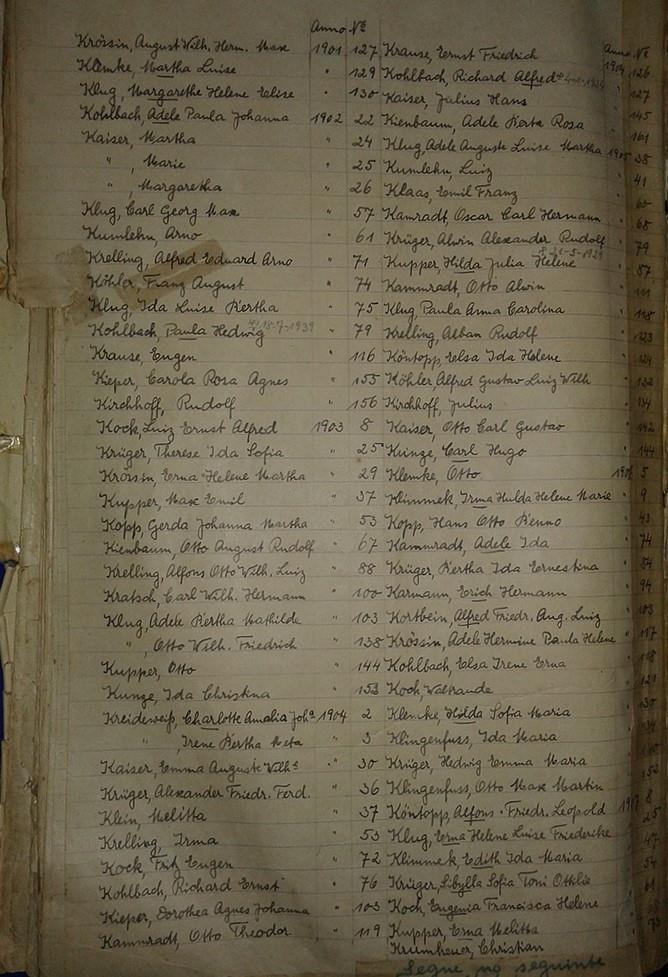 Anno No
Krössin, August Wilh. Herm. Max 1901 127
Klemke, Martha Luise " 129
Klug, Margarethe Helene Elise " 130
Kohlbach, Adele Paula Johanna 1902 22
Kaiser, Martha " 24
" , Marie " 25
" , Margaretha " 26
Klug, Carl Georg Max " 57
Kumlehn, Arno " 61
Krelling, Alfred Eduard Arno " 71
Köhler, Franz August " 74
Klug, Ida Luise Bertha " 75
Kohlbach, Paula Hedwig 18-7-1939 " 79
Krause, Eugen " 116
Kieper, Carola Rosa Agnes " 155
Kirchhoff, Rudolf " 156
Kock, Luiz Ernst Alfred 1903 8
Krüger, Therese Ida Sofia " 25
Krössin, Erna Helene Martha " 29
Kupper, Max Emil " 37
Kopp, Gerda Johanna Martha " 53
Kienbaum, Otto August Rudolf " 67
Krelling, Alfons Otto Wilh. Luiz " 88
Kratsch, Carl Wilh. Hermann " 100
Klug, Adele Bertha Mathilde " 103
" , Otto Wilh. Friedrich " 138
Kupper, Otto " 144
Kunze, Ida Christina " 153
Kreideweiß, Charlotte Amalia Joha 1904 2
" , Irene Bertha Meta " 3
Kaiser, Emma Auguste Wilhe " 30
Krüger, Alexander Friedr. Ferd. " 36
Klein, Melitta " 37
Krelling, Irma " 53
Kock, Fritz Eugen " 72
Kohlbach, Richard Ernst " 76
Kieper, Dorothea Agnes Johanna " 103
Kammradt, Otto Theodor " 119
Anno No
Krause, Ernst Friedrich 1904 126
Kohlbach, Richard Alfred " 127
Kaiser, Julius Hans " 145
Kienbaum, Adele Berta Rosa " 161
Klug, Adele Auguste Luise Martha 1905 38
Kumlehn, Luiz " 41
Klaas, Emil Franz "
Kamradt, Oscar Carl Hermann " 68
Krüger, Alwin Alexander Rudolf " 79
Kupper Hilda Julia Helene " 87
Kammradt, Otto Alwin "
Klug, Paula Anna Carolina " 118
Krelling, Alban Rudolf " 123
Köntopp, Elsa Ida Helene " 124
Köhler Alfred Gustav Luiz Wilh " 132
Kirchhoff, Julius " 134
Kaiser, Otto Carl Gustav " 142
Kunze, Carl Hugo " 144
Klemke, Otto 1906 5
Klimmek, Irma Hulda Helene Marie " 9
Kopp, Hans Otto Benno " 43
Kammradt, Adele Ida " 74
Krüger, Bertha Ida Ernestina " 84
Karmann, Erich Hermann " 94
Kortbein, Alfred Friedr. Aug. Luiz " 103
Krössin, Adele Hermine Paula Helene " 117
Kohlbach, Elsa Irene Erna " 118
Koch, Waltraude " 121
Klemke, Hilda Sofia Maria " 130
Klingenfuss, Ida Maria " 134
Krüger, Hedwig Emma Maria "
Klingenfuss, Otto Max Martin "
Köntopp, Alfons Friedr. Leopold 1907 8
Klug, Erna Helene Luise Friedericke " 25
Klimmek, Edith Ida Maria " 47
Krüger, Sibylla Sofia Toni Ottilie " 54
Koch, Eugenia Francisca Helene " 61
Kupper, Erna Melitta
Krumheuer, Christian
Segue na seguinte